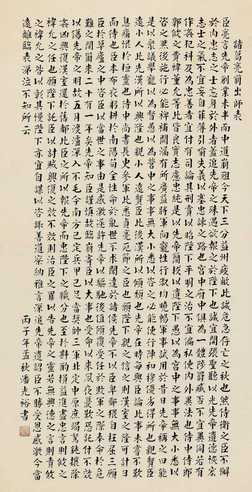 諸葛亮前出師表
臣亮言先帝創業未半而中道崩殂今天下三分益州疲敝此誠危急存亡之秋也然侍衛之臣不懈
於內忠志之士忘身於外者蓋追先帝之殊遇欲報之於陛下也誠宜開張聖聽以光先帝遺德恢宏
志士之氣不宜妄自菲薄引喻失義以塞忠諫之路也宮中府中俱為一體陟罰臧否不宜異同若有
作姦犯科及為忠善者宜付有司論其刑賞以昭陛下平明之治不宜偏私使內外異法也侍中侍郎
郭攸之費禕董允等此皆良實志慮忠純是以先帝簡拔以遺陛下愚以為宮中之事事無大小悉以
咨之然後施行必能裨補闕漏有所廣益將軍向寵性行淑均曉暢軍事試用於昔日先帝稱之曰能
是以眾議舉寵以為督愚以為營中之事事無大小悉以咨之必能使行陣和穆優劣得所也親賢臣
遠小人此先漢所以興隆也親小人遠賢臣此後漢所以傾頹也先帝在時每與臣論此事未嘗不歎
息痛恨於桓靈也侍中尚書長史參軍此悉貞亮死節之臣也願陛下親之信之則漢室之隆可計日
而待也臣本布衣躬耕南陽苟全性命於亂世不求聞達於諸侯先帝不以臣卑鄙猥自枉屈三顧
臣於草廬之中諮臣以當世之事由是感激遂許先帝以驅馳後值傾覆受任於敗軍之際奉命於危
難之間爾來二十有一年矣先帝知臣謹慎故臨崩寄臣以大事也受命以來夙夜憂歎恐託付不效
以傷先帝之明故五月渡瀘深入不毛今南方已定兵甲已足當獎帥三軍北定中原庶竭駑鈍攘除
姦凶興復漢室還於舊都此臣所以報先帝而忠陛下之職分也至於斟酌損益進盡忠言則攸之
禕允之任也願陛下託臣以討賊興復之效不效則治臣之罪以告先帝之靈若無興德之言則責攸之
禕允之咎以彰其慢陛下亦宜自謀以諮諏善道察納雅言深追先帝遺詔臣不勝受恩感激今當
遠離臨表涕泣不知所云
丙子年孟秋潘光裕書